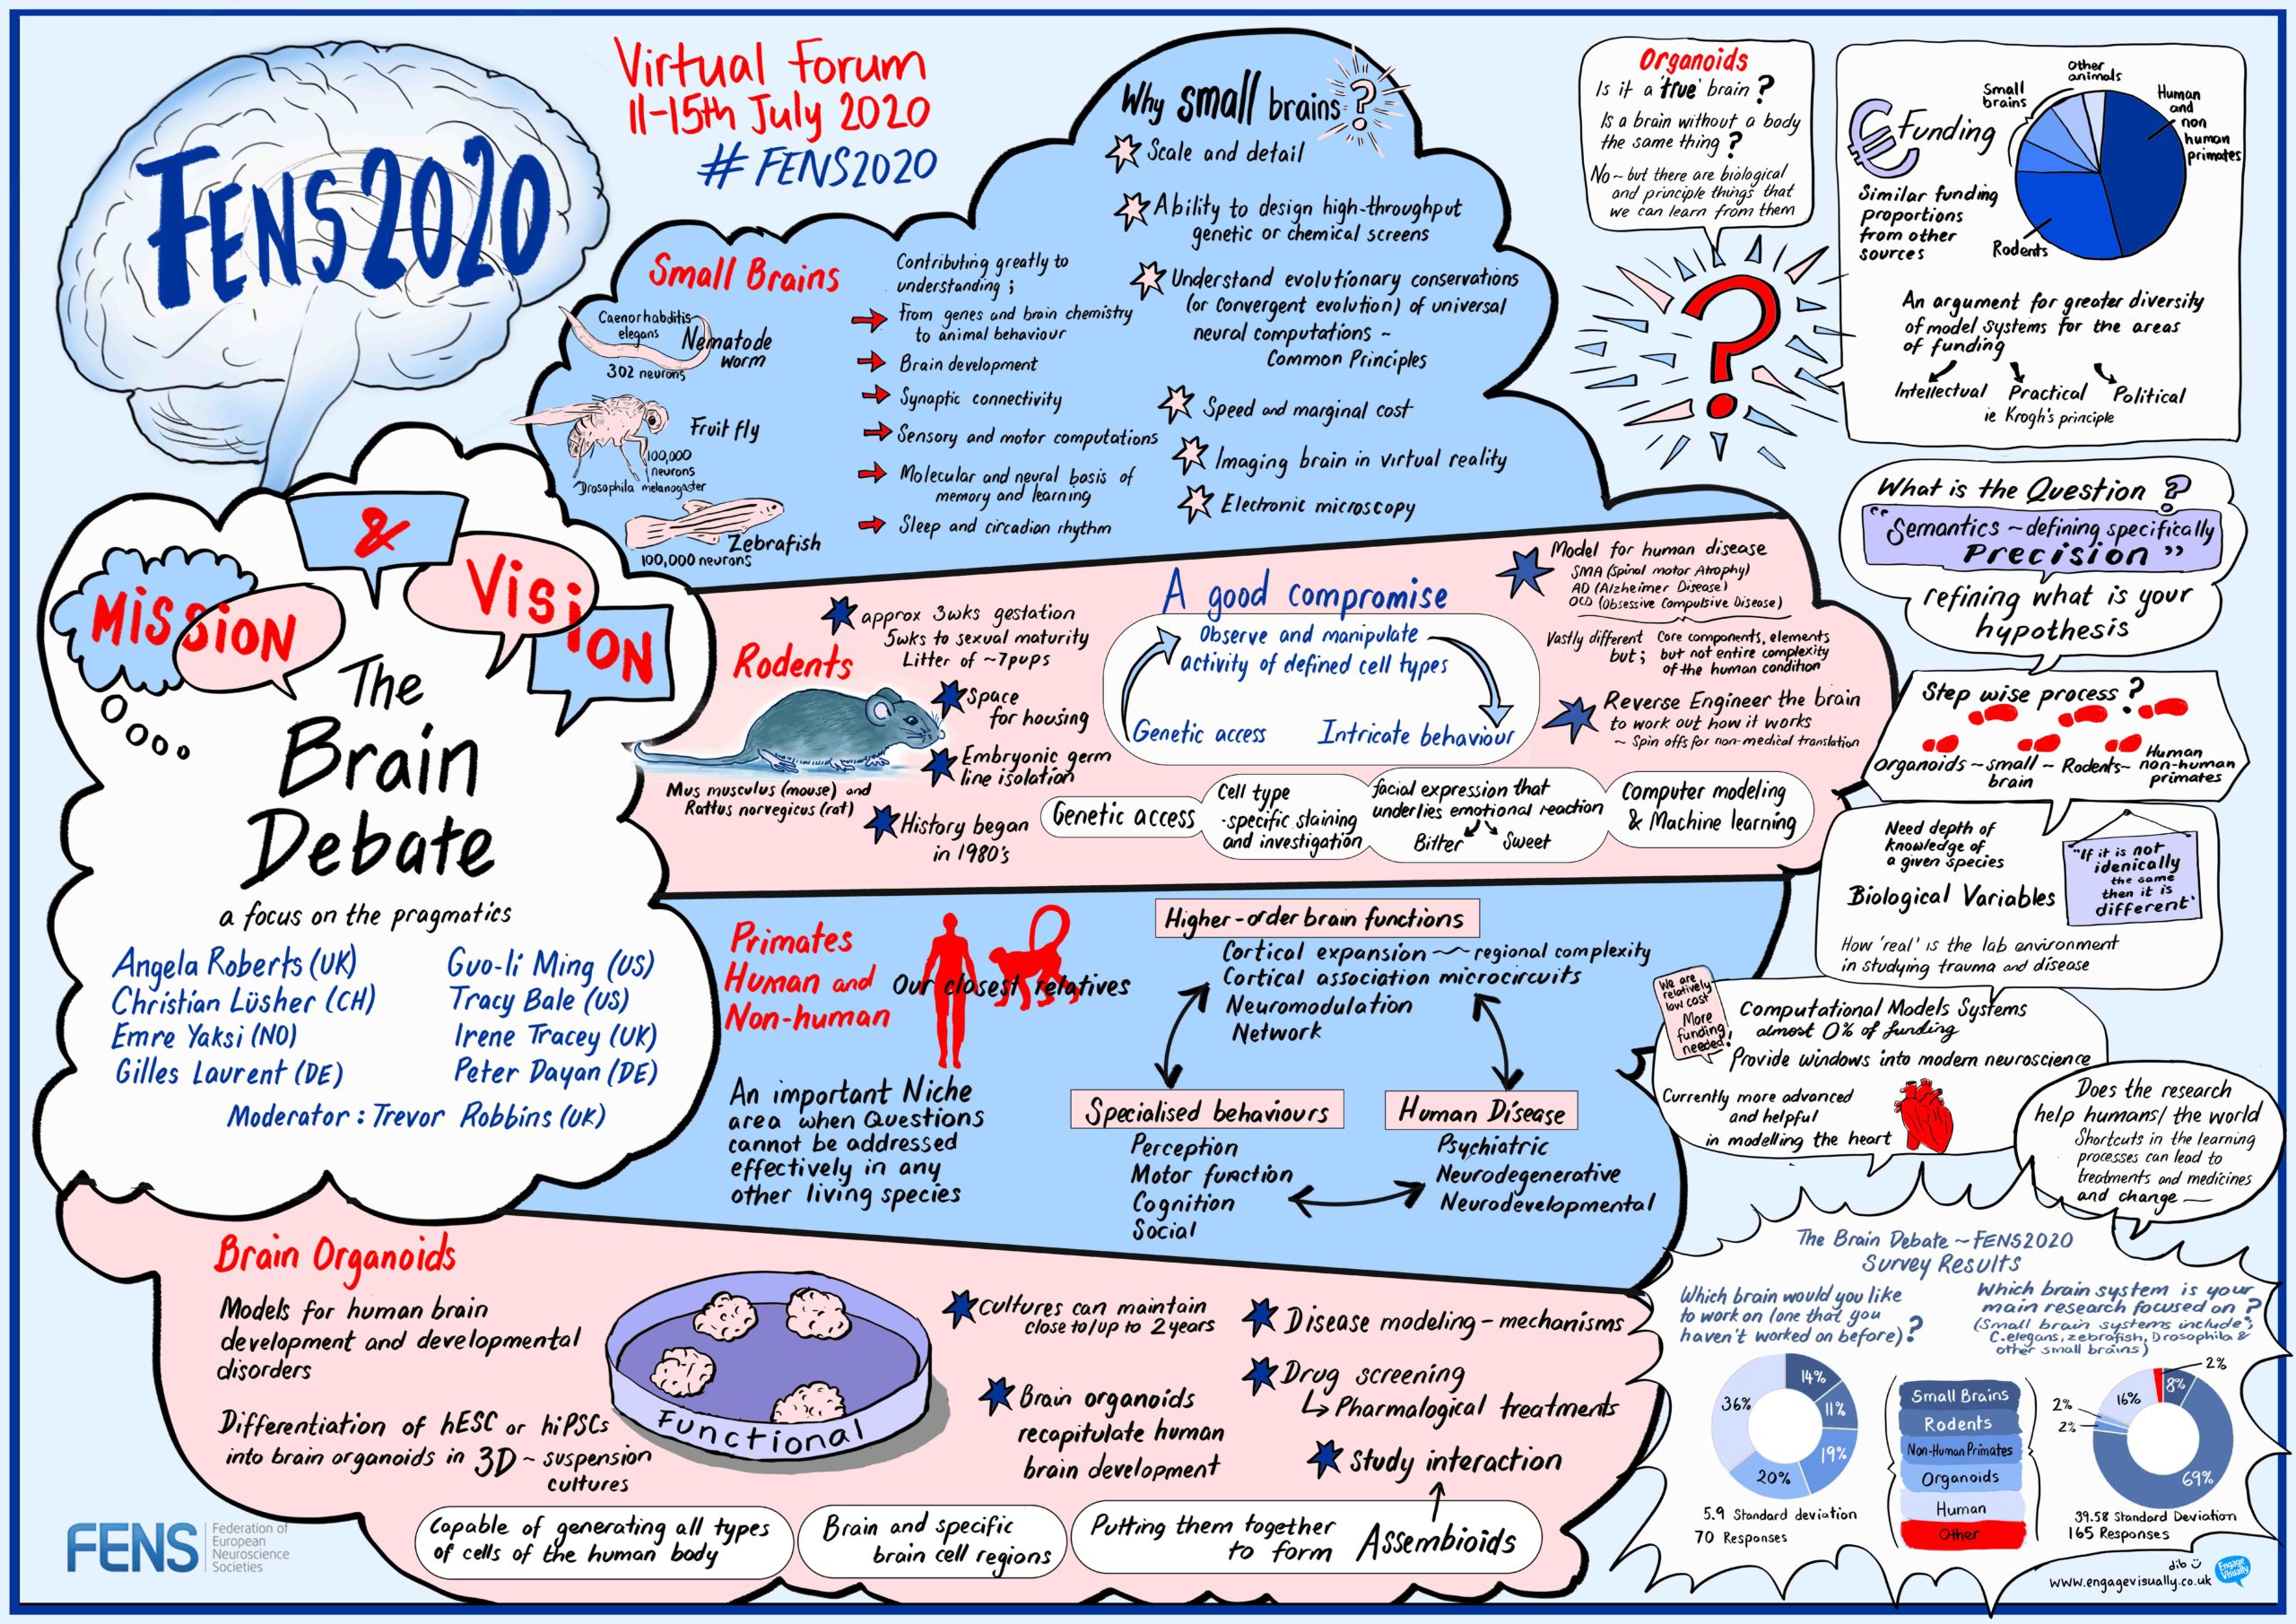 FENS2020
Virtual Forum
11-15th July 2020
# FENS2020
Mission
&
Vision
The
Brain
Debate
a focus on the pragmatics
Angela Roberts (UK)
Christian Lüsher (CH)
Emre Yaksi (NO)
Gilles Laurent (DE)
Guo-li Ming (US)
Tracy Bale (US)
Irene Tracey (UK)
Peter Dayan (DE)
Moderator : Trevor Robbins (UK)
Small Brains
Caenorhabditis
elegans
Nematode
worm
302 neurons
Fruit fly
100,000
neurons
Drosophila melanogaster
Zebrafish
100,000 neurons
Contributing greatly to
understanding ;
From genes and brain chemistry
to animal behaviour
Brain development
Synaptic connectivity
Sensory and motor computations
Molecular and neural basis of
memory and learning
Sleep and circadian rhythm
Why small brains ?
Scale and detail
Ability to design high-throughput
genetic or chemical screens
Understand evolutionary conservations
(or convergent evolution) of universal
neural computations ~
Common Principles
Speed and marginal cost
Imaging brain in virtual reality
Electronic microscopy
Rodents
Mus musculus (mouse) and
Rattus norvegicus (rat)
approx 3wks gestation
5wks to sexual maturity
Litter of ~7pups
Space
for housing
Embryonic germ
line isolation
History began
in 1980's
A good compromise
Observe and manipulate
activity of defined cell types
Genetic access
Intricate behaviour
Genetic access
Cell type
-specific staining
and investigation
facial expression that
underlies emotional reaction
Bitter
Sweet
Computer modeling
& Machine learning
Model for human disease
SMA (Spinal motor Atrophy)
AD (Alzheimer Disease)
OCD (Obsessive Compulsive Disease)
Vastly different
but;
Core components, elements
but not entire complexity
of the human condition
Reverse Engineer the brain
to work out how it works
~ Spin offs for non-medical translation
Primates
Human and
Non-human
Our closest relatives
An important Niche
area when Questions
cannot be addressed
effectively in any
other living species
Higher-order brain functions
Cortical expansion ~ regional complexity
Cortical association microcircuits
Neuromodulation
Network
Specialised behaviours
Perception
Motor function
Cognition
Social
Human Disease
Psychiatric
Neurodegenerative
Neurodevelopmental
Brain Organoids
Models for human brain
development and developmental
disorders
Differentiation of hESC or hiPSCs
into brain organoids in 3D ~ suspension
cultures
Functional
Cultures can maintain
close to/up to 2 years
Brain organoids
recapitulate human
brain development
Disease modeling - mechanisms
Drug screening
↳ Pharmalogical treatments
Study interaction
Capable of generating all types
of cells of the human body
Brain and specific
brain cell regions
Putting them together
to form Assembioids
FENS
Federation of
European
Neuroscience
Societies
Organoids
Is it a 'true' brain ?
Is a brain without a body
the same thing ?
No ~ but there are biological
and principle things that
we can learn from them
?
€ Funding
Similar funding
proportions
from other
sources
Small
brains
Other
animals
Human
and
non
human
primates
Rodents
An argument for greater diversity
of model systems for the areas
of funding
Intellectual
Practical
Political
ie Krogh's principle
What is the Question ?
"Semantics ~ defining specifically
Precision"
refining what is your
hypothesis
Step wise process ?
Organoids ~ small ~ Rodents ~ Human
brain
non-human
primates
Need depth of
knowledge of
a given species
Biological Variables
"If it is not
idenically
the same
then it is
different'
How 'real' is the lab environment
in studying trauma and disease
We are
relatively
low cost
More
funding
needed!
Computational Models Systems
almost 0% of funding
Provide windows into modern neuroscience
Currently more advanced
and helpful
in modelling the heart
Does the research
help humans/ the world
Shortcuts in the learning
processes can lead to
treatments and medicines
and change
The Brain Debate ~ FENS2020
Survey Results
Which brain would you like
to work on (one that you
haven't worked on before)?
14%
11%
19%
20%
36%
5.9 Standard deviation
70 Responses
Small Brains
Rodents
Non-Human Primates
Organoids
Human
Other
Which brain system is your
main research focused on ?
(Small brain systems include;
C.elegans, zebrafish, Drosophila &
other small brains)
2%
8%
16%
2%
2%
69%
39.58 Standard Deviation
165 Responses
dib
Engage
Visually
www.engagevisually.co.uk